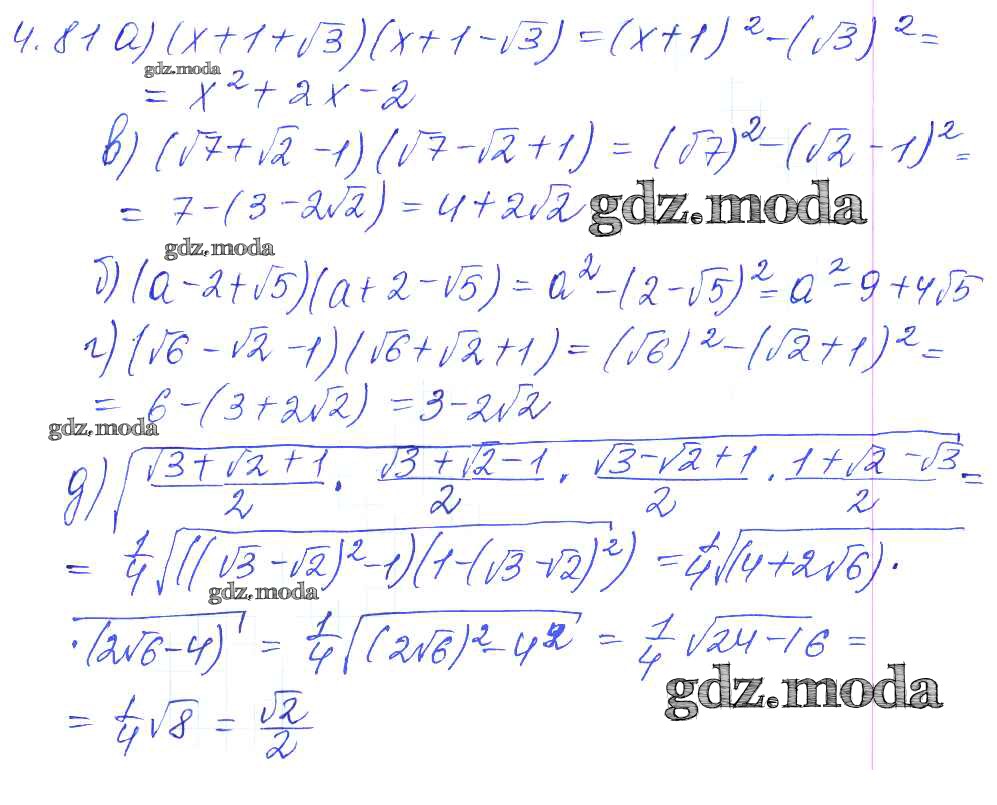 4.81 а) (x+1+√3)(x+1-√3) = (x+1)² - (√3)² =
gdz.moda
= x² + 2x - 2
в) (√7+√2 -1)(√7-√2+1) = (√7)² - (√2 - 1)² =
= 7-(3-2√2) = 4+2√2
gdz.moda
gdz.moda
б) (a-2+√5)(a+2-√5) = a² - (2-√5)² = a² - 9 + 4√5
г) (√6 - √2 - 1)(√6+√2+1) = (√6)² - (√2+1)² =
= 6-(3+2√2) = 3-2√2
gdz.moda
д) √((√3+√2+1)/2 · (√3+√2-1)/2 · (√3-√2+1)/2 · (1+√2-√3)/2) =
= 1/4 √(((√3-√2)²-1)(1-(√3-√2)²)) = 1/4 √((4+2√6) ·
gdz.moda
· (2√6-4)) = 1/4 √((2√6)² - 4²) = 1/4 √(24-16) =
gdz.moda
= 1/4 √8 = √2/2